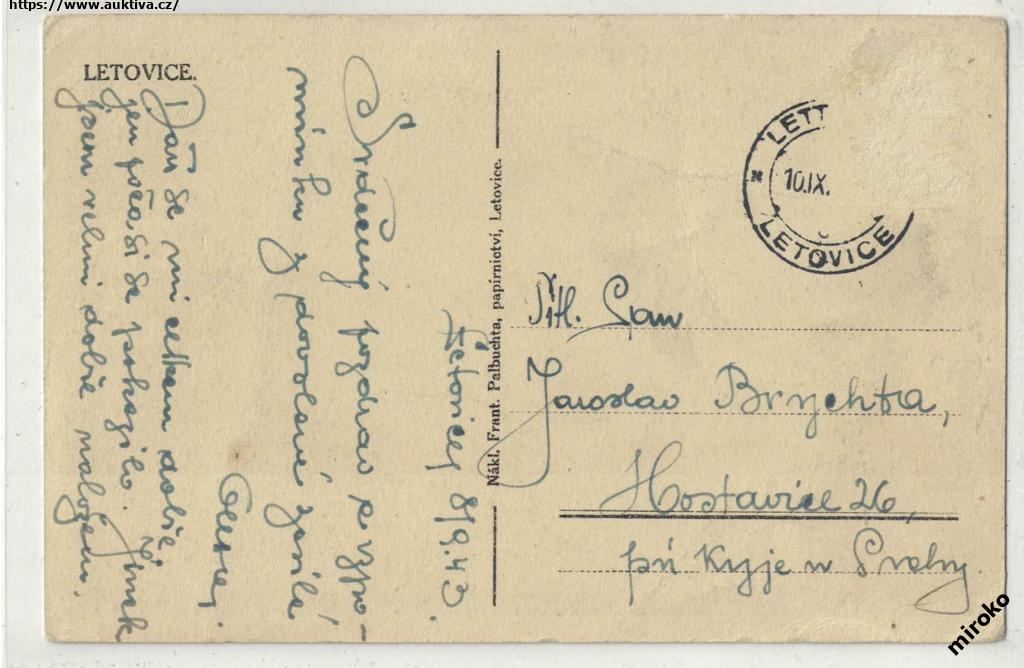 https://www.auktiva.cz/
LETOVICE.
Letovice, 8/9.43.
Srdečný pozdrav a vzpo-
mínku z dovolené zasílá
Daří se mi celkem dobře,
jen počasí se pokazilo. Jinak
jsem velmi dobře naložen.
Nákl. Frant. Palbuchta, papírnictví, Letovice.
LETT
10.IX.
LETOVICE
Pan
Jaroslav Brychta,
Hostavice 26,
př. Kyje u Prahy.
miroko